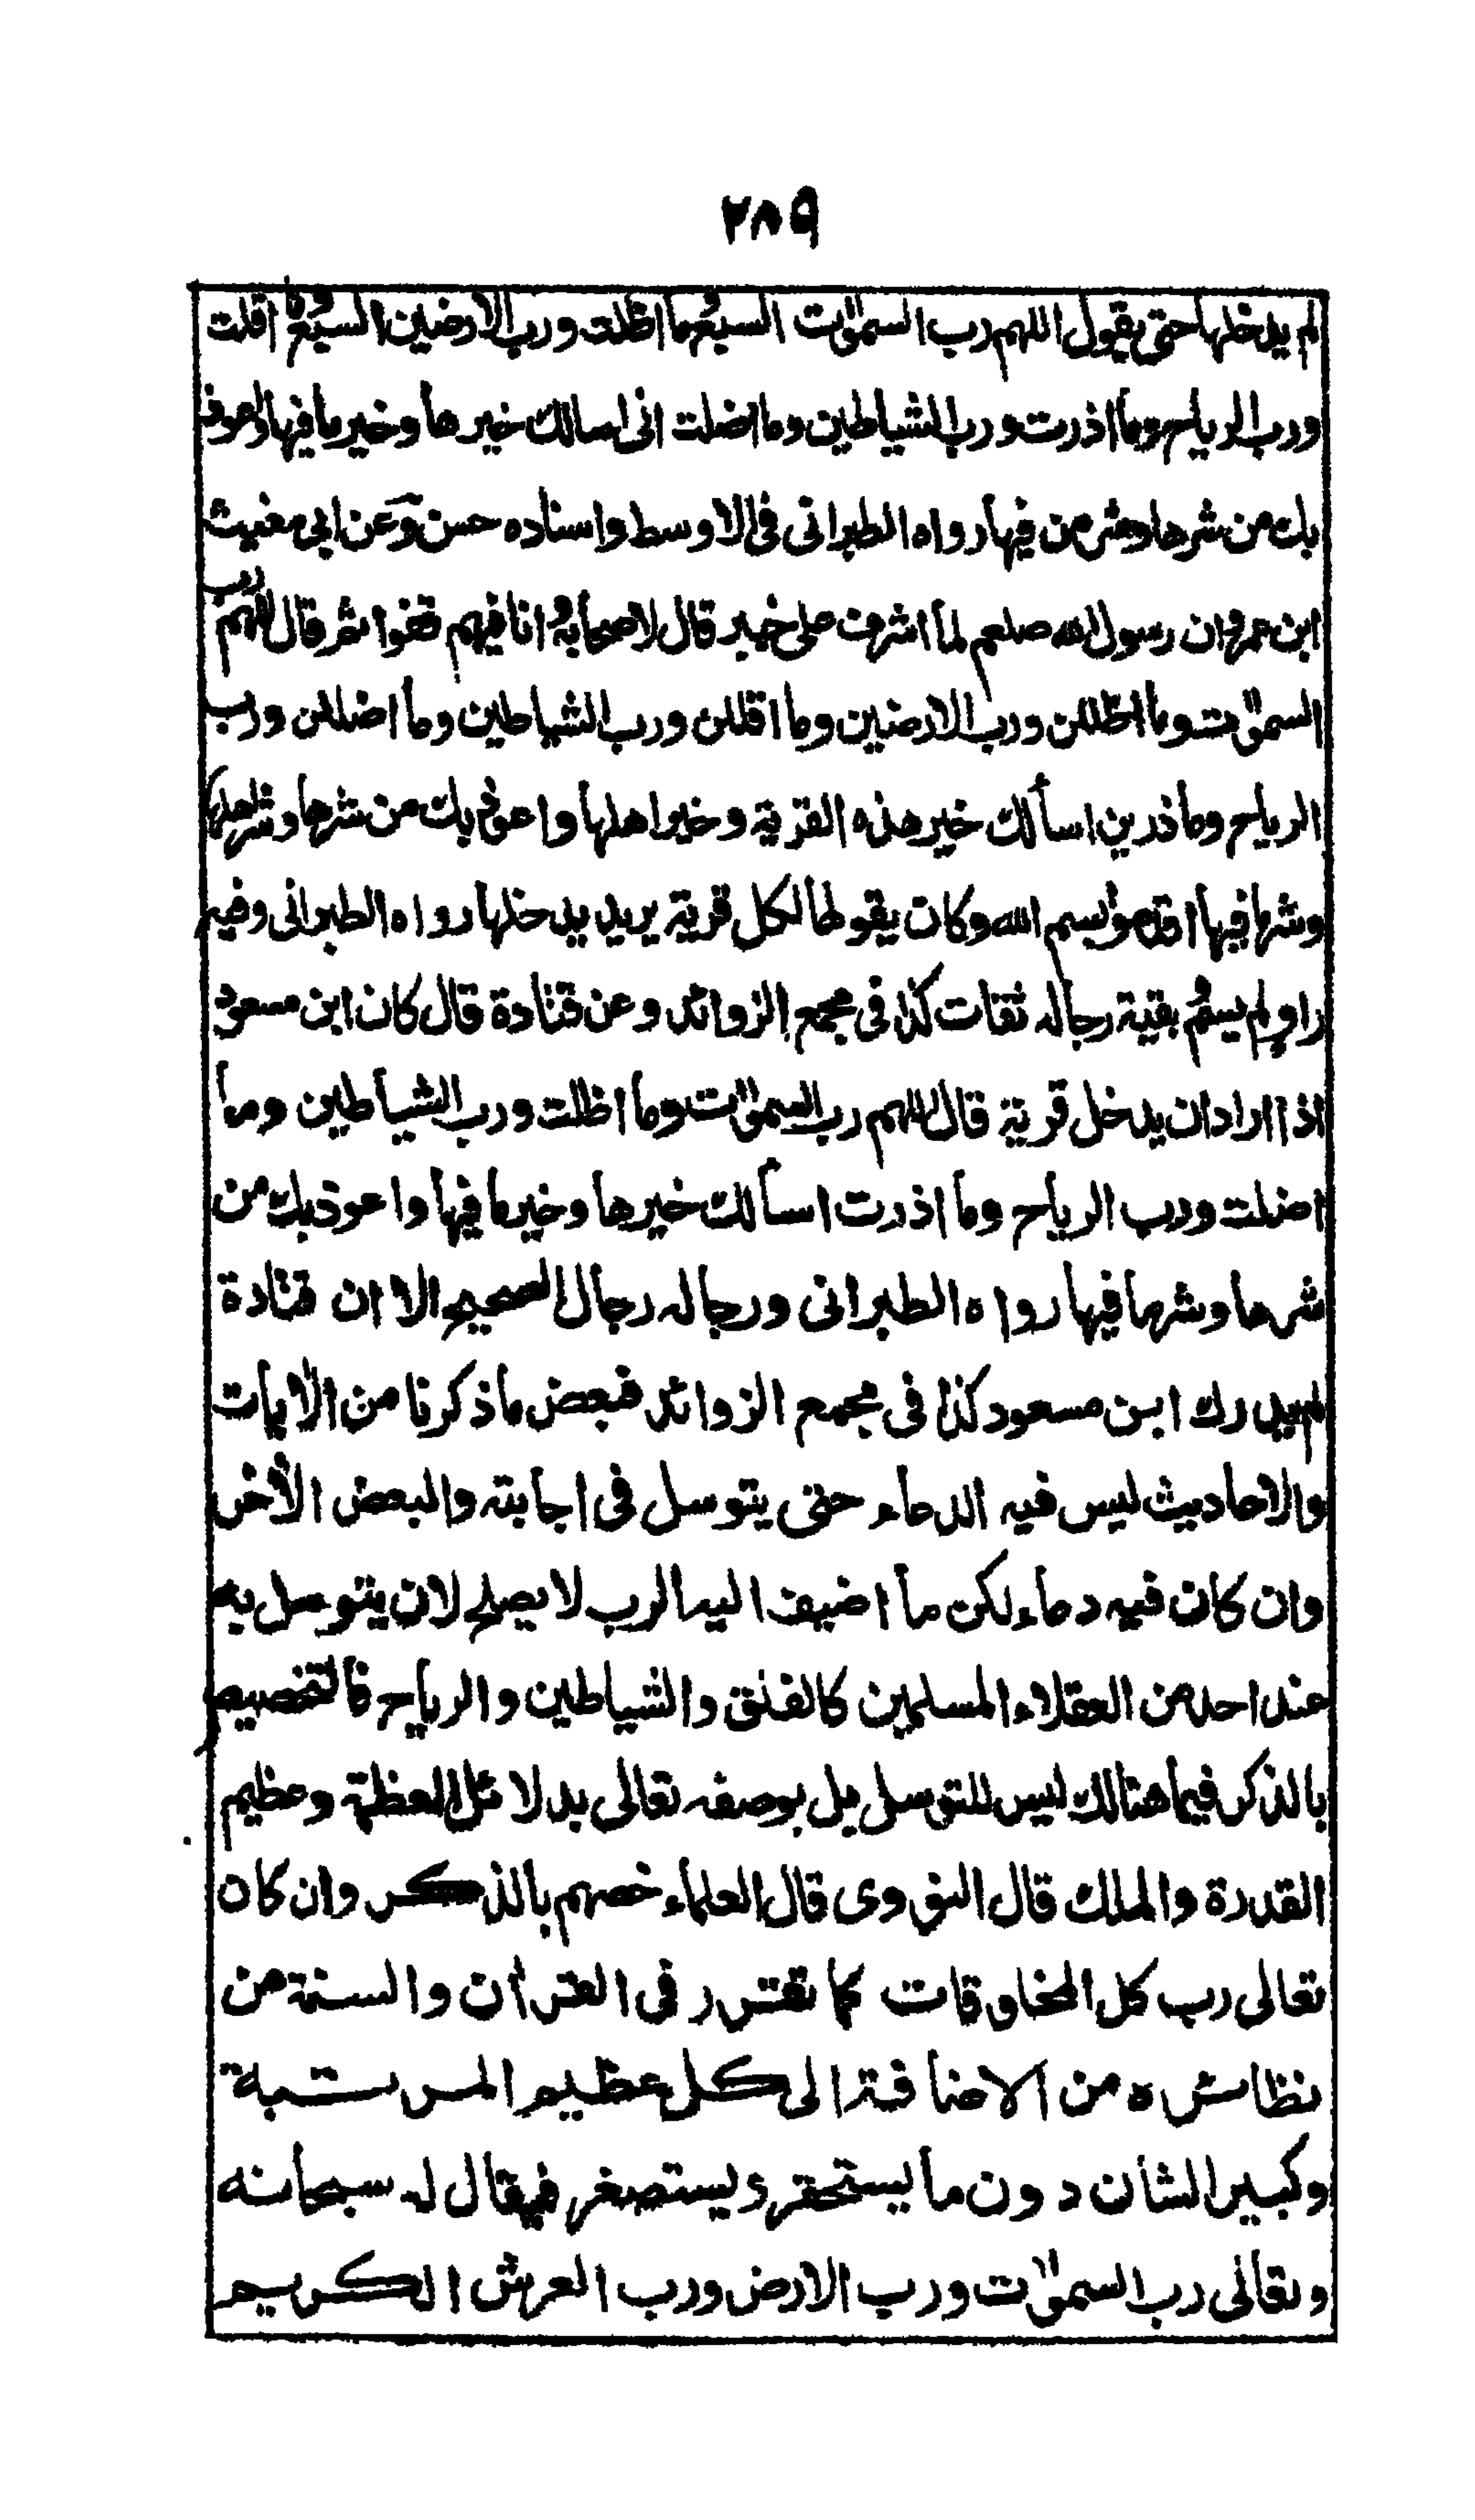 ٢٨٩
لم يدخلها حتى يقول اللهم رب السموٰت السبع وما اظلت ورب الارضين السبع وما اقلت
ورب الرياح وما اذرت ورب الشياطين وما اضلت انى اسالك خيرها وخير ما فيها واعوذ
بك من شرها وشر من فيها رواه الطبرانى فى الاوسط واسناده حسن وعن ابى مغيث
ابن عمرو ان رسول الله صلعم لما اشرف على خيبر قال لاصحابه وانا فيهم قفوا ثم قال اللهم رب
السموٰت وما اظللن ورب الارضين وما اقللن ورب الشياطين وما اضللن ورب
الرياح وما ذرين اسألك خير هذه القرية وخير اهلها واعوذ بك من شرها وشر اهلها
وشر ما فيها اقدموا بسم الله وكان يقولها لكل قرية يريد يدخلها رواه الطبرانى وفيه
راو لم يسم وبقية رجاله ثقات كذا فى مجمع الزوائد وعن قتادة قال كان ابن مسعود
اذا اراد ان يدخل قرية قال اللهم رب السموٰت وما اظلت ورب الشياطين وما
اضلت ورب الرياح وما اذرت اسألك خيرها وخير ما فيها واعوذ بك من
شرها وشر ما فيها رواه الطبرانى ورجاله رجال الصحيح الا ان قتادة
لم يدرك ابن مسعود كذا فى مجمع الزوائد فبعض ما ذكرنا من الآيات
والاحاديث ليس فيه الدعاء حتى يتوسل فى اجابته والبعض الآخر
وان كان فيه دعاء لكن ما اضيف اليه الرب لا يصلح لان يتوسل به
عند احد من العقلاء المسلمين كالفلق والشياطين والرياح فالتخصيص
بالذكر فيما هنالك ليس للتوسل بل بوصفه تعالى بدلائل العظمة وعظيم
القدرة والملك قال النووى قال العلماء خصهم بالذكر وان كان
تعالى رب كل المخلوقات كما تقرر فى القرآن والسنة من
نظائره من الاضافة الى كل عظيم المرتبة
وكبير الشأن دون ما يستحقر ويستصغر فيقال له سبحانه
وتعالى رب السموٰت ورب الارض ورب العرش الكريم